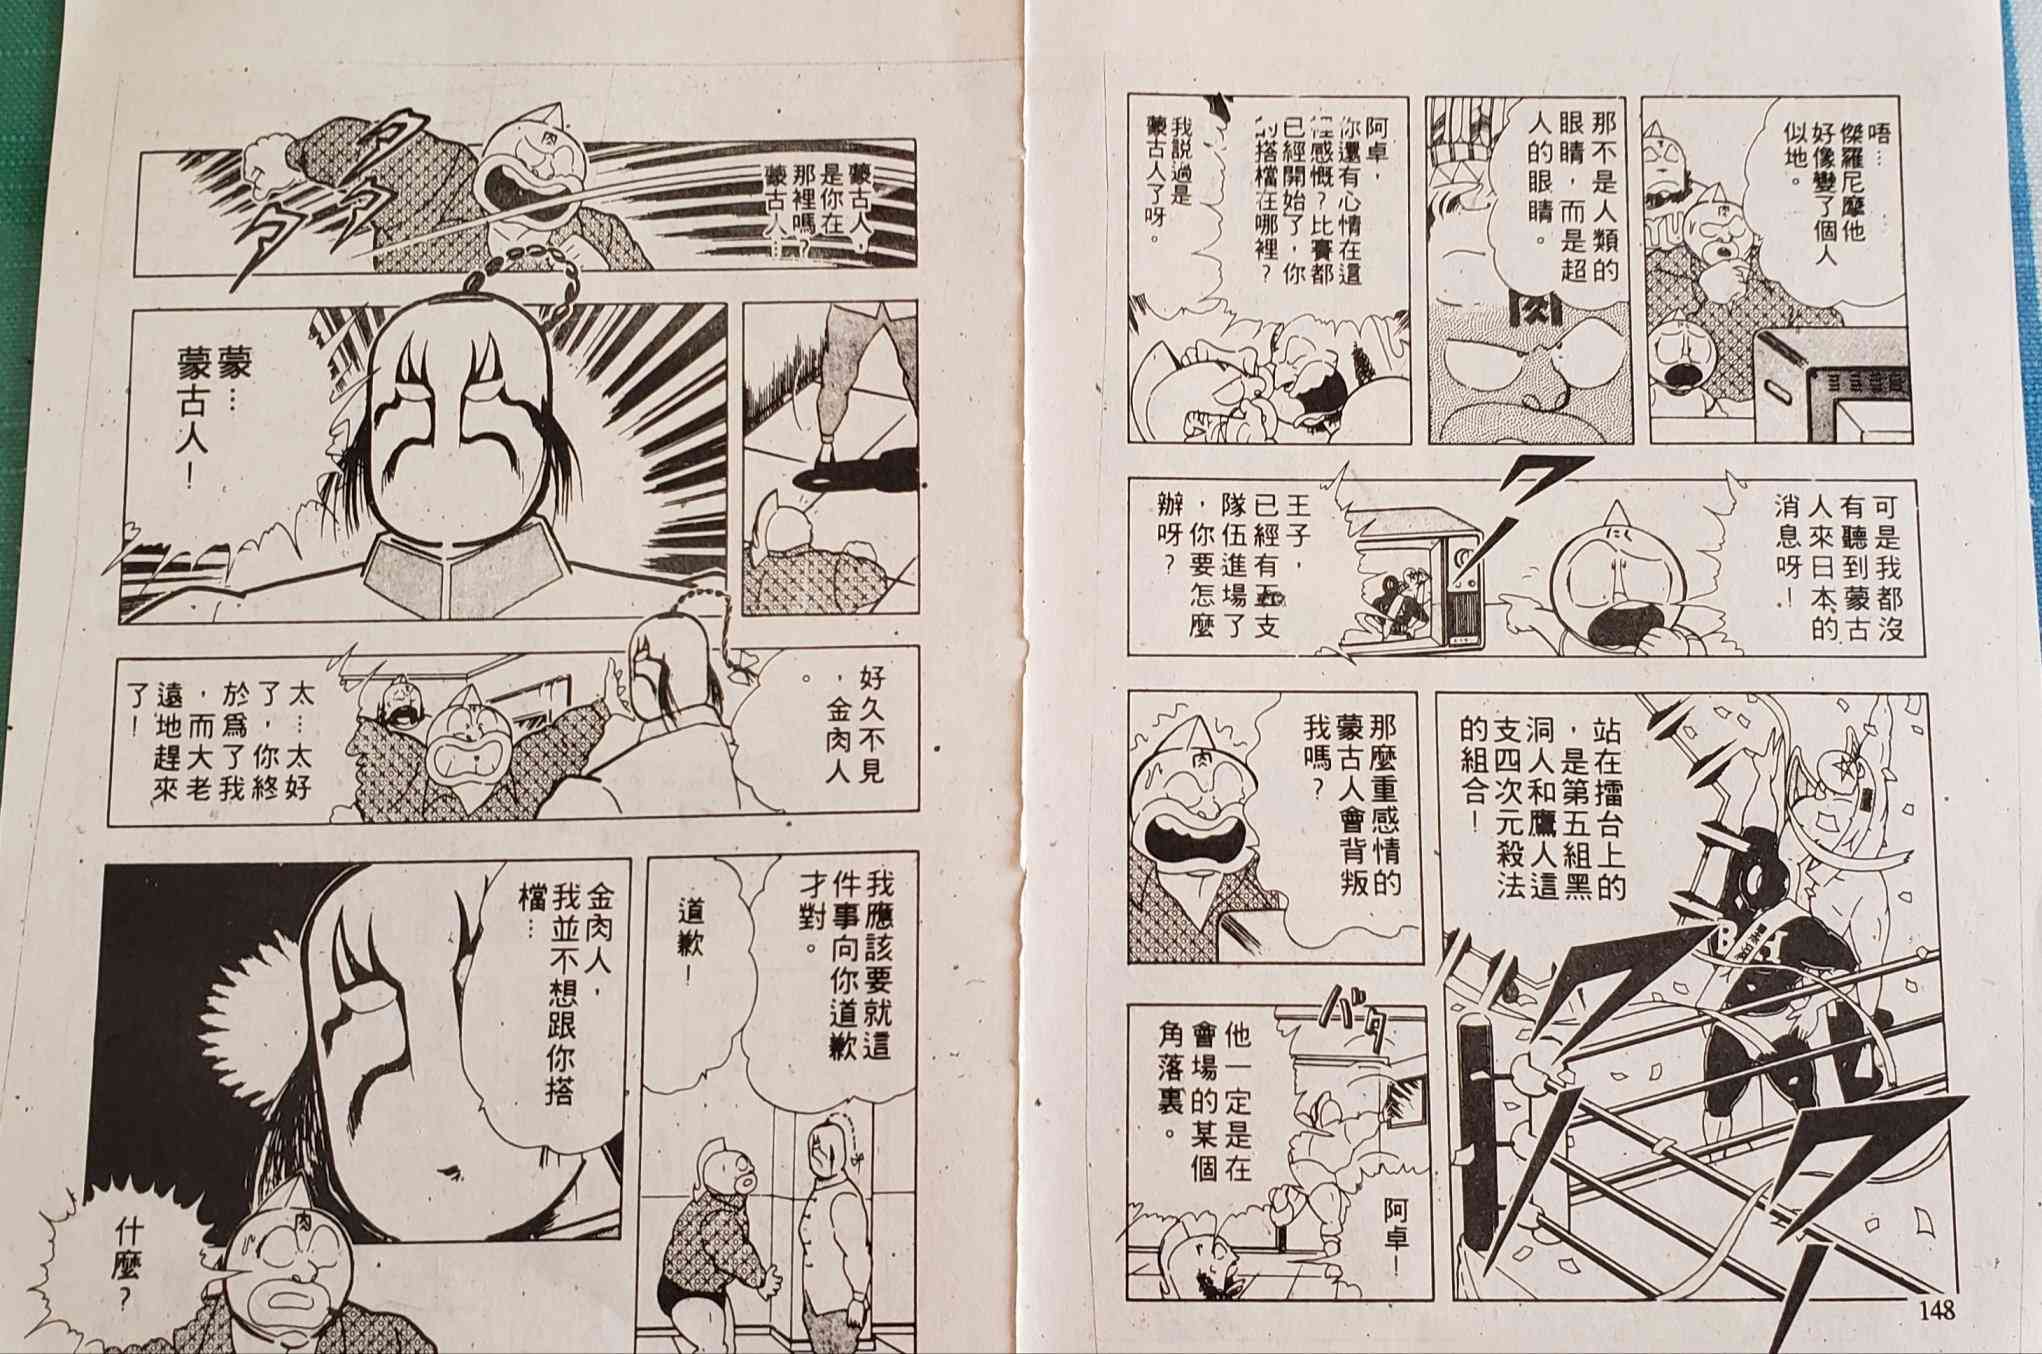 唔…
傑羅尼摩他
好像變了個人
似地。
那不是人類的
眼睛，而是超
人的眼睛。
肉
阿卓，
你還有心情在這
裡感慨？比賽都
已經開始了，你
的搭檔在哪裡？
我説過是
蒙古人了呀。
可是我都沒
有聽到蒙古
人來日本的
消息呀！
にく
ワー
王子，
已經有五支
隊伍進場了
，你要怎麼
辦呀？
站在擂台上的
，是第五組黑
洞人和鷹人這
支四次元殺法
的組合！
ワーワー
那麼重感情的
蒙古人會背叛
我嗎？
肉
バタ
他一定是在
會場的某個
角落裏。
阿卓！
148
蒙古人，
是你在
那裡嗎？
蒙古人…
肉
タタタタ
蒙…
蒙古人！
好久不見
，金肉人
。
太…太好
了，你終
於為了我
，而大老
遠地趕來
了！
我應該要就這
件事向你道歉
才對。
道歉！
金肉人，
我並不想跟你搭
檔…
肉
什麼？